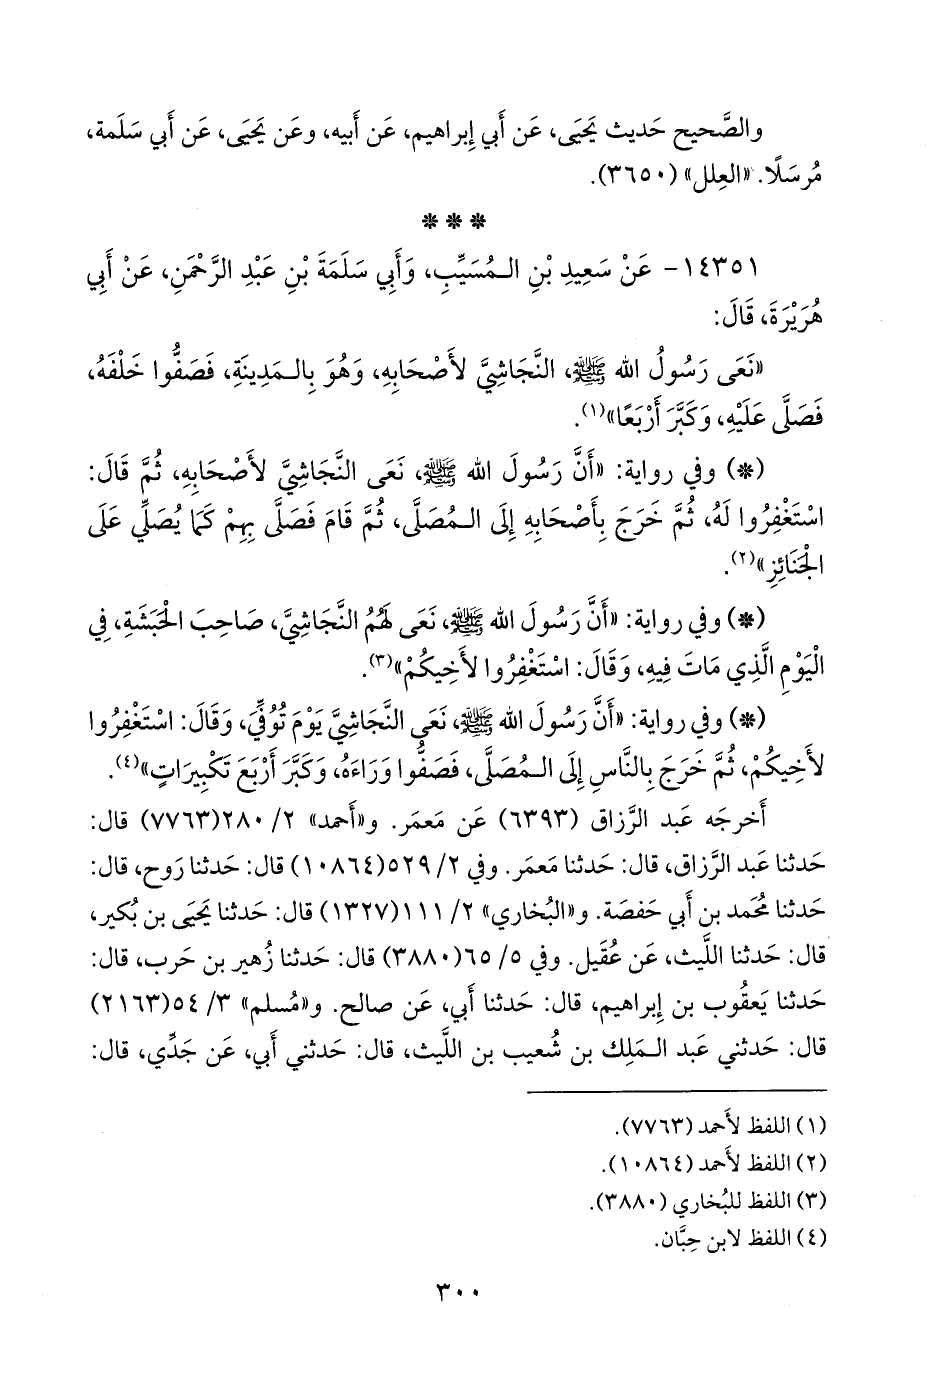 والصَّحيح حَديث يَحيَى، عَن أَبي إِبراهيم، عَن أَبيه، وعَن يَحيَى، عَن أَبي سَلَمة،
مُرسَلًا. «العِلل» (٣٦٥٠).
***
١٤٣٥١- عَنْ سَعِيدِ بْنِ الـمُسَيِّبِ، وَأَبِي سَلَمَةَ بْنِ عَبْدِ الرَّحْمَنِ، عَنْ أَبِي
هُرَيْرَةَ، قَالَ:
«نَعَى رَسُولُ الله ﷺ، النَّجَاشِيَّ لأَصْحَابِهِ، وَهُوَ بِالـمَدِينَةِ، فَصَفُّوا خَلْفَهُ،
فَصَلَّى عَلَيْهِ، وَكَبَّرَ أَرْبَعًا»(١).
(*) وفي رواية: «أَنَّ رَسُولَ الله ﷺ، نَعَى النَّجَاشِيَّ لأَصْحَابِهِ، ثُمَّ قَالَ:
اسْتَغْفِرُوا لَهُ، ثُمَّ خَرَجَ بِأَصْحَابِهِ إِلَى الـمُصَلَّى، ثُمَّ قَامَ فَصَلَّى بِهِمْ كَمَا يُصَلِّي عَلَى
الْجَنَائِزِ»(٢).
(*) وفي رواية: «أَنَّ رَسُولَ الله ﷺ، نَعَى لَهُمُ النَّجَاشِيَّ، صَاحِبَ الْحَبَشَةِ، فِي
الْيَوْمِ الَّذِي مَاتَ فِيهِ، وَقَالَ: اسْتَغْفِرُوا لأَخِيكُمْ»(٣).
(*) وفي رواية: «أَنَّ رَسُولَ الله ﷺ، نَعَى النَّجَاشِيَّ يَوْمَ تُوُفِّيَ، وَقَالَ: اسْتَغْفِرُوا
لأَخِيكُمْ، ثُمَّ خَرَجَ بِالنَّاسِ إِلَى الـمُصَلَّى، فَصَفُّوا وَرَاءَهُ، وَكَبَّرَ أَرْبَعَ تَكْبِيرَاتٍ»(٤).
أَخرجَه عَبد الرَّزاق (٦٣٩٣) عَن مَعمَر. و«أَحمد» ٢/ ٢٨٠(٧٧٦٣) قال:
حَدثنا عَبد الرَّزاق، قال: حَدثنا مَعمَر. وفي ٢/ ٥٢٩(١٠٨٦٤) قال: حَدثنا رَوح، قال:
حَدثنا مُحمد بن أَبي حَفصَة. و«البُخاري» ٢/ ١١١(١٣٢٧) قال: حَدثنا يَحيَى بن بُكير،
قال: حَدثنا اللَّيث، عَن عُقَيل. وفي ٥/ ٦٥(٣٨٨٠) قال: حَدثنا زُهير بن حَرب، قال:
حَدثنا يَعقُوب بن إِبراهيم، قال: حَدثنا أَبي، عَن صالح. و«مُسلم» ٣/ ٥٤(٢١٦٣)
قال: حَدثني عَبد الـمَلِك بن شُعيب بن اللَّيث، قال: حَدثني أَبي، عَن جَدِّي، قال:
(١) اللفظ لأَحمد (٧٧٦٣).
(٢) اللفظ لأَحمد (١٠٨٦٤).
(٣) اللفظ للبُخاري (٣٨٨٠).
(٤) اللفظ لابن حِبَّان.
٣٠٠